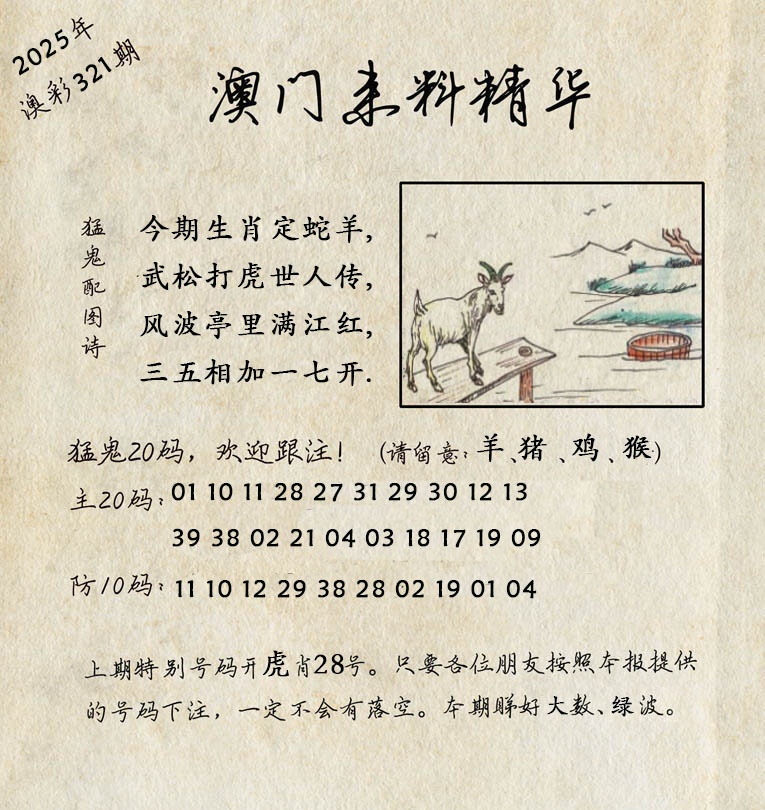 2025年
澳彩321期
澳门来料精华
猛鬼配图诗
今期生肖定蛇羊,
武松打虎世人传,
风波亭里满江红,
三五相加一七开.
猛鬼20码，欢迎跟注！（请留意：羊、猪、鸡、猴）
主20码：01 10 11 28 27 31 29 30 12 13
39 38 02 21 04 03 18 17 19 09
防10码：11 10 12 29 38 28 02 19 01 04
上期特别号码开虎肖28号。只要各位朋友按照本报提供
的号码下注，一定不会有落空。本期睇好大数、绿波。